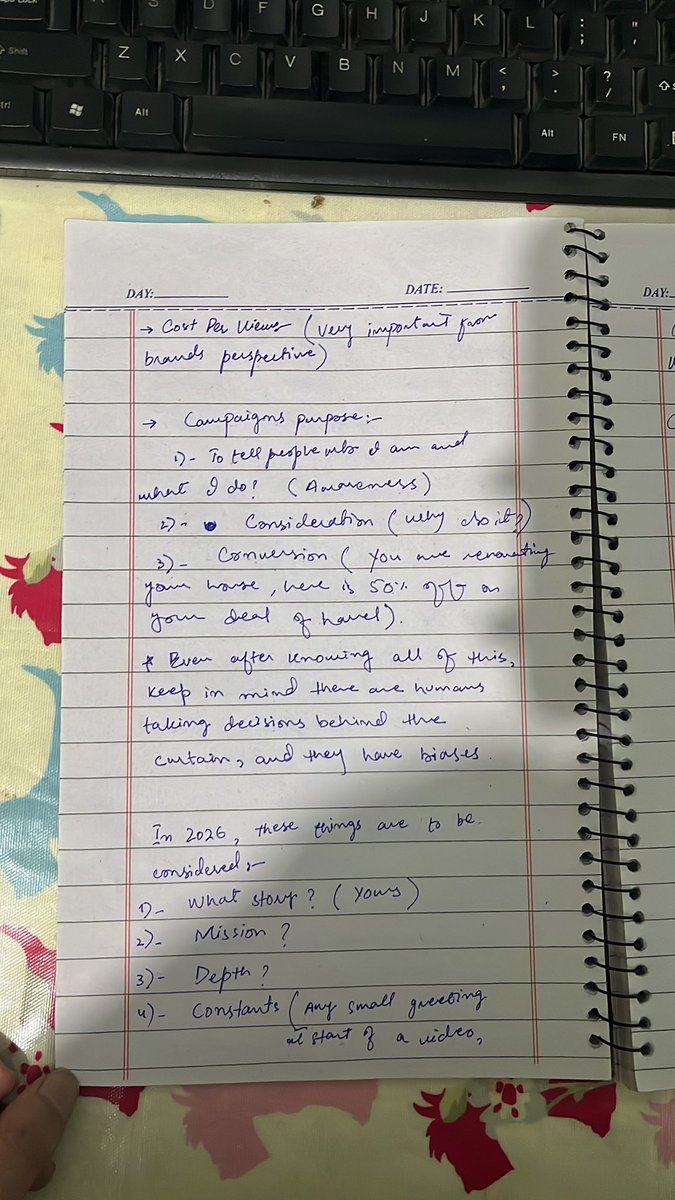 S D F G H J K L : ; " '
Shift Z X C V B N M < , > . ? /
Ctrl Alt Alt FN
DAY: DATE:
DAY:
→ Cost Per Views (very important from
brands perspective)
→ Campaigns purpose:-
1)- To tell people who I am and
what I do? (Awareness)
2)- Consideration (why do it?)
3)- Conversion ( You are renovating
your house, here is 50% off on
your deal of
* Even after knowing all of this,
keep in mind there are humans
taking decisions behind the
curtain, and they have biases.
In 2026, these things are to be
considered:-
1)- What story? ( Yours )
2)- Mission ?
3)- Depth ?
4)- Constants (Any small greeting
at start of a video,